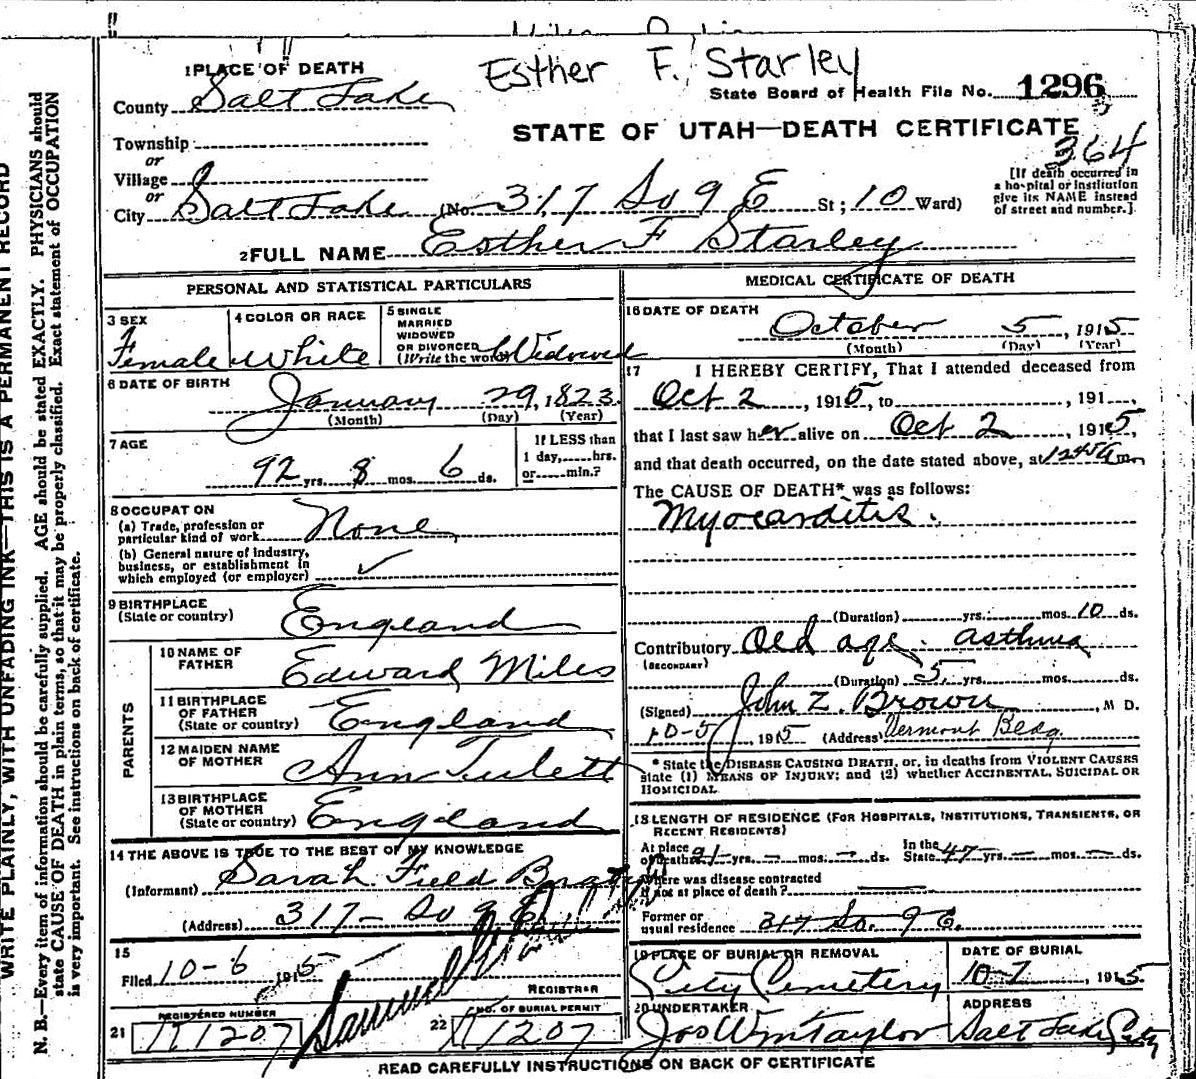 Esther F. Starley
1 PLACE OF DEATH
County Salt Lake
State Board of Health File No. 1296
Township
or
Village
or
City Salt Lake (No. 317 So 9 E St; 10 Ward)
STATE OF UTAH—DEATH CERTIFICATE
364
[If death occurred in
a hospital or institution
give its NAME instead
of street and number.]
2 FULL NAME Esther F Starley
PERSONAL AND STATISTICAL PARTICULARS
3 SEX
Female
4 COLOR OR RACE
White
5 SINGLE
MARRIED
WIDOWED
OR DIVORCED
(Write the word) Widowed
6 DATE OF BIRTH
January 29, 1823
(Month) (Day) (Year)
7 AGE
92 yrs. 8 mos. 6 ds.
If LESS than
1 day, hrs.
or min.?
8 OCCUPATION
(a) Trade, profession or
particular kind of work None
(b) General nature of industry,
business, or establishment in
which employed (or employer) ✓
9 BIRTHPLACE
(State or country) England
PARENTS
10 NAME OF
FATHER Edward Miles
11 BIRTHPLACE
OF FATHER
(State or country) England
12 MAIDEN NAME
OF MOTHER Ann Tulett
13 BIRTHPLACE
OF MOTHER
(State or country) England
14 THE ABOVE IS TRUE TO THE BEST OF MY KNOWLEDGE
(Informant) Sarah Field
(Address) 317 - So 9 E
15
Filed 10-6 1915
Samuel
REGISTRAR
21 REGISTERED NUMBER
1207
22 NO. OF BURIAL PERMIT
1207
MEDICAL CERTIFICATE OF DEATH
16 DATE OF DEATH
October 5, 1915
(Month) (Day) (Year)
17 I HEREBY CERTIFY, That I attended deceased from
Oct 2, 1915, to , 191 ,
that I last saw her alive on Oct 2, 1915,
and that death occurred, on the date stated above, at 1245 A m.
The CAUSE OF DEATH* was as follows:
Myocarditis.
(Duration) yrs. mos. 10 ds.
Contributory Old age. asthma
(SECONDARY)
(Duration) 5 yrs. mos. ds.
(Signed) John Z. Brown, M D.
10-5, 1915 (Address) Vermont Bldg.
* State the DISEASE CAUSING DEATH, or, in deaths from VIOLENT CAUSES
state (1) MEANS OF INJURY; and (2) whether ACCIDENTAL, SUICIDAL OR
HOMICIDAL.
18 LENGTH OF RESIDENCE (FOR HOSPITALS, INSTITUTIONS, TRANSIENTS, OR
RECENT RESIDENTS)
At place
of death 21 yrs. – mos. – ds.
In the
State 47 yrs. – mos. – ds.
Where was disease contracted
if not at place of death?
Former or
usual residence 317 So. 9 E.
19 PLACE OF BURIAL OR REMOVAL
City Cemetery
DATE OF BURIAL
10-7, 1915
20 UNDERTAKER
Jos Wm Taylor
ADDRESS
Salt Lake City
READ CAREFULLY INSTRUCTIONS ON BACK OF CERTIFICATE
WRITE PLAINLY, WITH UNFADING INK—THIS IS A PERMANENT RECORD
N. B.—Every item of information should be carefully supplied. AGE should be stated EXACTLY. PHYSICIANS should
state CAUSE OF DEATH in plain terms, so that it may be properly classified. Exact statement of OCCUPATION
is very important. See instructions on back of certificate.